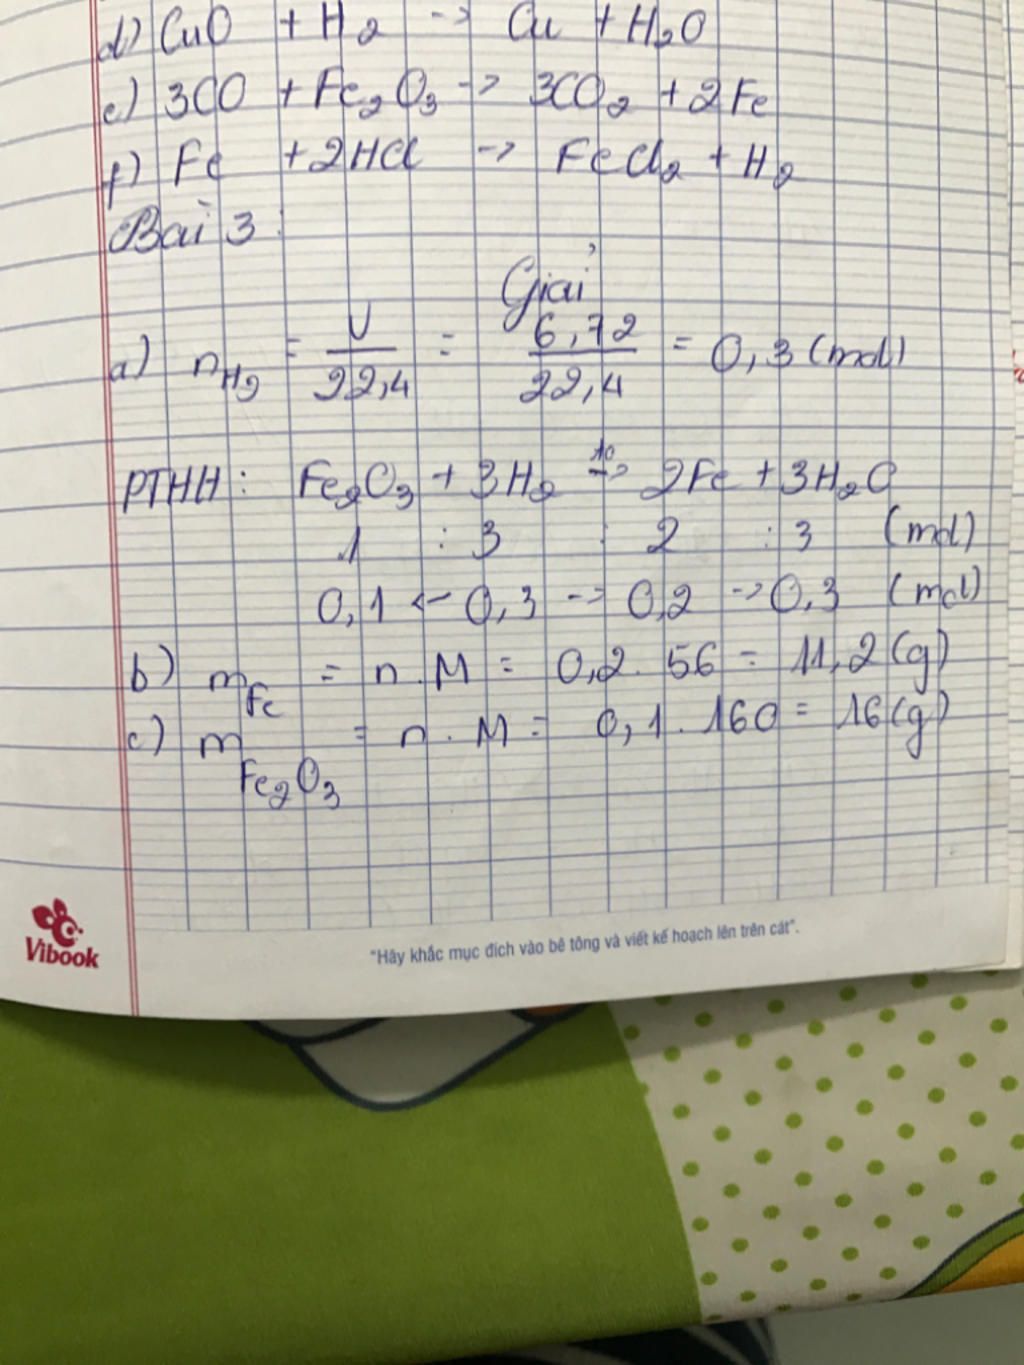 d) CuO + H2 -> Cu + H2O
e) 3CO + Fe2O3 -> 3CO2 + 2Fe
f) Fe + 2HCl -> FeCl2 + H2
Bài 3:
Giải
a) nH2 = V/22,4 = 6,72/22,4 = 0,3 (mol)
PTHH: Fe2O3 + 3H2 -t°-> 2Fe + 3H2O
1 : 3 : 2 : 3 (mol)
0,1 <- 0,3 -> 0,2 -> 0,3 (mol)
b) mFe = n.M = 0,2.56 = 11,2 (g)
c) mFe2O3 = n.M = 0,1.160 = 16 (g)
Vibook
"Hãy khắc mục đích vào bê tông và viết kế hoạch lên trên cát".